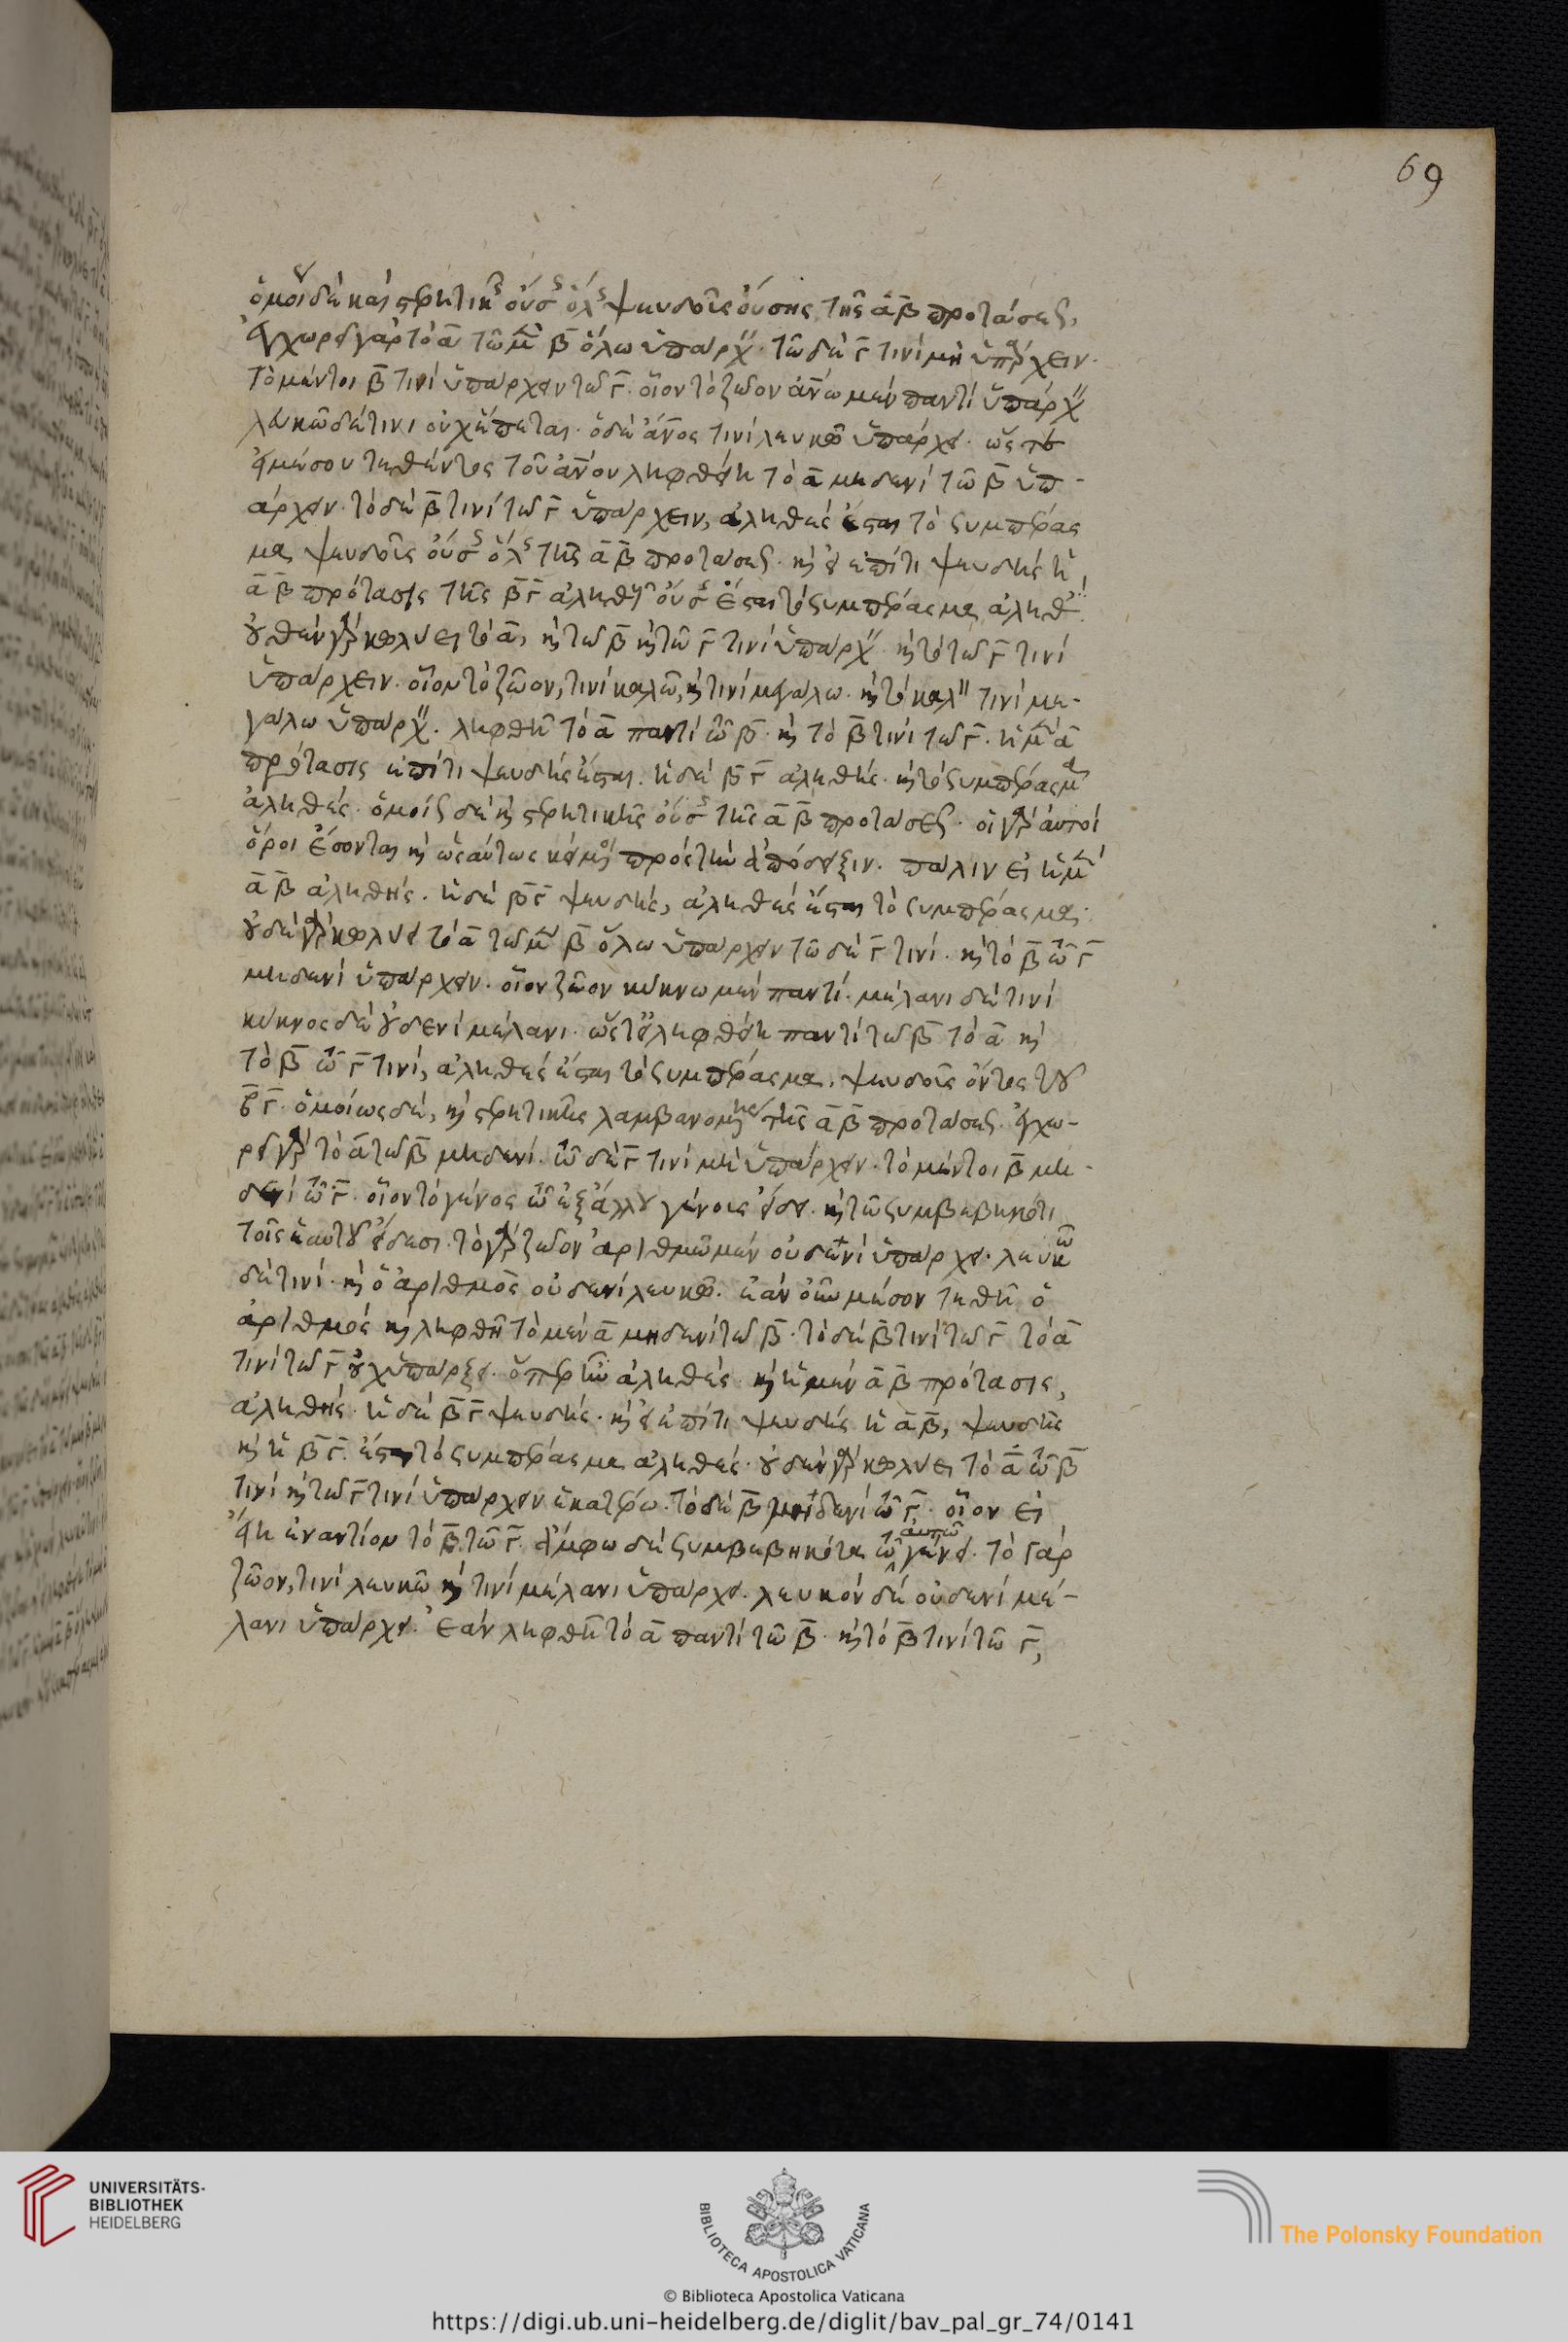 69
ὁμοί δὲ καὶ στρητικῆς οὔσς ὅλς ψευδοῦς οὔσης τῆς ᾱ β̄ προτάσεως,
ἐγχωρεῖ γὰρ τὸ ᾱ τῶ μὲν β̄ ὅλω ὑπάρχειν· τῶ δὲ γ̄ τινὶ μὴ ὑπάρχειν·
τὸ μέντοι β̄ τινὶ ὑπάρχειν τῶ γ̄· οἷον τὸ ζῶον ἀν̄ω μὲν παντὶ ὑπάρχει
λευκῶ δέ τινι οὐχ ἕπεται· ὁ δὲ ἄν̄ος τινὶ λευκῶ ὑπάρχει· ὥστε
εἰ μέσου τεθέντος τοῦ ἀν̄ου ληφθείη τὸ ᾱ μηδενὶ τῶ β̄ ὑπ-
άρχειν· τὸ δὲ β̄ τινὶ τῶ γ̄ ὑπάρχειν, ἀληθὲς ἔσται τὸ συμπέρας
μα ψευδοῦς οὔσς ὅλς τῆς ᾱ β̄ προτάσεως· κὶ εἰ ἐπίτι ψευδὴς ἡ
ᾱ β̄ πρότασις τῆς β̄ γ̄ ἀληθοῦς οὔσς ἔσται τὸ συμπέρασμα ἀληθές
οὐθὲν γὰρ κωλύει τὸ ᾱ, κὶ τῶ β̄ κὶ τῶ γ̄ τινὶ ὑπάρχειν κὶ τὸ τῶ γ̄ τινὶ
ὑπάρχειν· οἷον τὸ ζῶον, τινὶ καλῶ, κὶ τινὶ μεγάλω· κὶ τὸ καλὸν τινὶ με-
γάλω ὑπάρχειν· ληφθῆ τὸ ᾱ παντὶ τῶ β̄· κὶ τὸ β̄ τινὶ τῶ γ̄· ἡ μὲν ᾱ
πρότασις ἐπίτι ψευδὴς ἔσται· ἡ δὲ β̄ γ̄ ἀληθής· κὶ τὸ συμπέρασμα
ἀληθές· ὁμοίως δὲ κὶ στρητικῆς οὔσς τῆς ᾱ β̄ προτάσεως· οἱ γὰρ αὐτοὶ
ὅροι ἔσονται κὶ ὡσαύτως κείμενοι πρὸς τὴν ἀπόδειξιν· πάλιν εἰ ἡ μὲν
ᾱ β̄ ἀληθής· ἡ δὲ β̄ γ̄ ψευδής, ἀληθὲς ἔσται τὸ συμπέρασμα·
οὐδὲν γὰρ κωλύει τὸ ᾱ τῶ μὲν β̄ ὅλω ὑπάρχειν τῶ δὲ γ̄ τινὶ· κὶ τὸ β̄ τῶ γ̄
μηδενὶ ὑπάρχειν· οἷον ζῶον κύκνω μὲν παντὶ· μέλανι δὲ τινὶ
κύκνος δὲ οὐδενὶ μέλανι· ὥστ' εἰ ληφθείη παντὶ τῶ β̄ τὸ ᾱ κὶ
τὸ β̄ τῶ γ̄ τινὶ, ἀληθὲς ἔσται τὸ συμπέρασμα, ψευδοῦς ὄντος τοῦ
β̄ γ̄· ὁμοίως δὲ, κὶ στρητικῆς λαμβανομένης τῆς ᾱ β̄ προτάσεως· ἐγχω-
ρεῖ γὰρ τὸ ᾱ τῶ β̄ μηδενὶ· τῶ δὲ γ̄ τινὶ μὴ ὑπάρχειν· τὸ μέντοι β̄ μη-
δενὶ τῶ γ̄· οἷον τὸ γένος τῶ ἐξ ἄλλου γένους εἴδει· κὶ τῶ συμβεβηκότι
τοῖς ἑαυτοῦ εἴδεσι· τὸ γὰρ ζῶον ἀριθμῶ μὲν οὐδενὶ ὑπάρχει· λευκῶ
δὲ τινὶ· κὶ ὁ ἀριθμὸς οὐδενὶ λευκῶ· ἐὰν οὖν μέσον τεθῆ ὁ
ἀριθμὸς κὶ ληφθῆ τὸ μὲν ᾱ μηδενὶ τῶ β̄· τὸ δὲ β̄ τινὶ τῶ γ̄ τὸ ᾱ
τινὶ τῶ γ̄ οὐχ ὑπάρξει· ὅπερ ἦν ἀληθές κὶ ἡ μὲν ᾱ β̄ πρότασις,
ἀληθής· ἡ δὲ β̄ γ̄ ψευδής· κὶ εἰ ἐπίτι ψευδὴς ἡ ᾱ β̄, ψευδὴς
κὶ ἡ β̄ γ̄· ἔσται τὸ συμπέρασμα ἀληθές· οὐδὲν γὰρ κωλύει τὸ ᾱ τῶ β̄
τινὶ κὶ τῶ γ̄ τινὶ ὑπάρχειν ἑκατέρω· τὸ δὲ β̄ μηδενὶ τῶ γ̄· οἷον εἰ
εἴη ἐναντίον τὸ β̄ τῶ γ̄· ἄμφω δὲ συμβεβηκότα τῶ αὐτῶ γένει· τὸ γὰρ
ζῶον, τινὶ λευκῶ κὶ τινὶ μέλανι ὑπάρχει· λευκὸν δὲ οὐδενὶ μέ-
λανι ὑπάρχει· Ἐὰν ληφθῆ τὸ ᾱ παντὶ τῶ β̄· κὶ τὸ β̄ τινὶ τῶ γ̄,
UNIVERSITÄTS-
BIBLIOTHEK
HEIDELBERG
BIBLIOTECA APOSTOLICA VATICANA
The Polonsky Foundation
© Biblioteca Apostolica Vaticana
https://digi.ub.uni-heidelberg.de/diglit/bav_pal_gr_74/0141